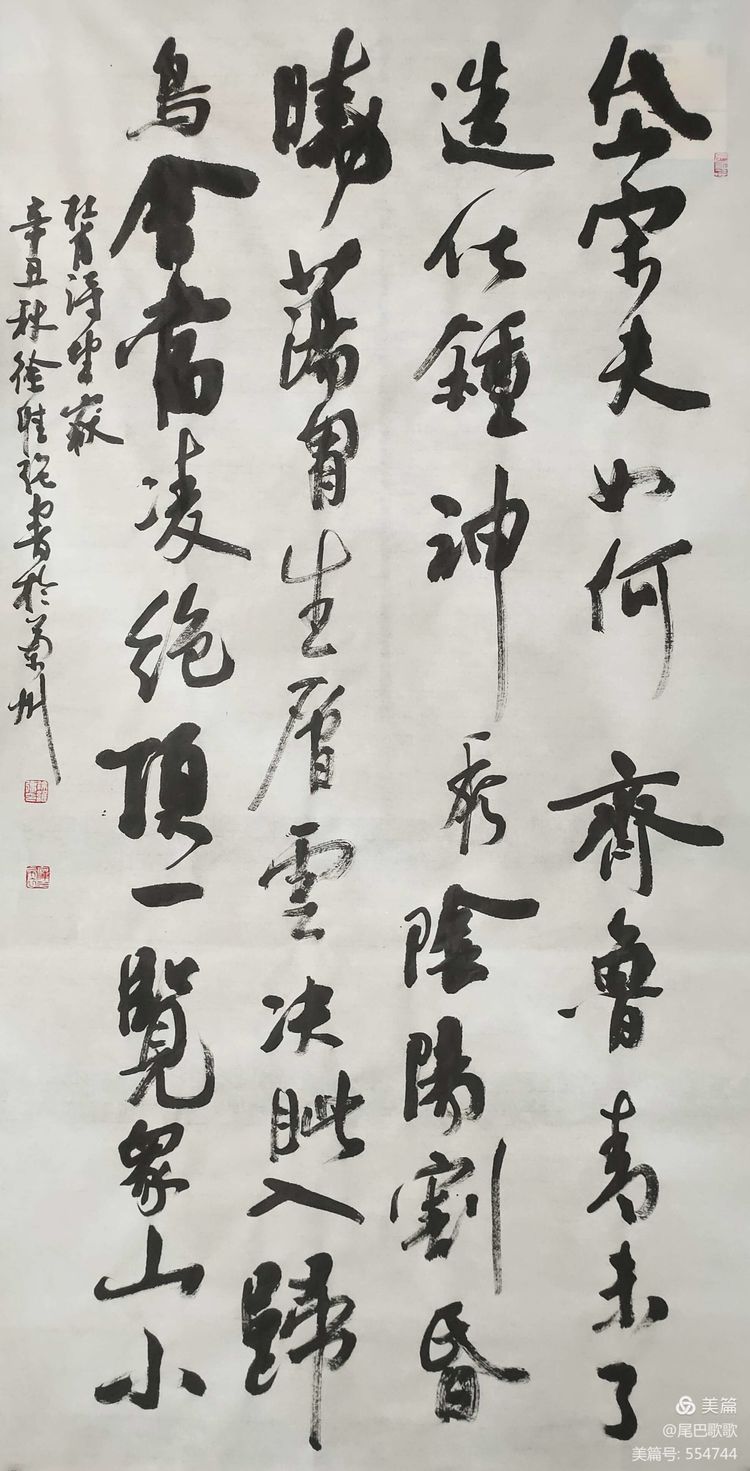 岱宗夫如何齊魯青未了
造化鍾神秀陰陽割昏
曉蕩胸生層雲決眦入歸
鳥會當凌絕頂一覽眾山小
杜甫詩望嶽
辛丑秋徐書於蘭州
美篇
@尾巴歌歌
美篇号: 554744